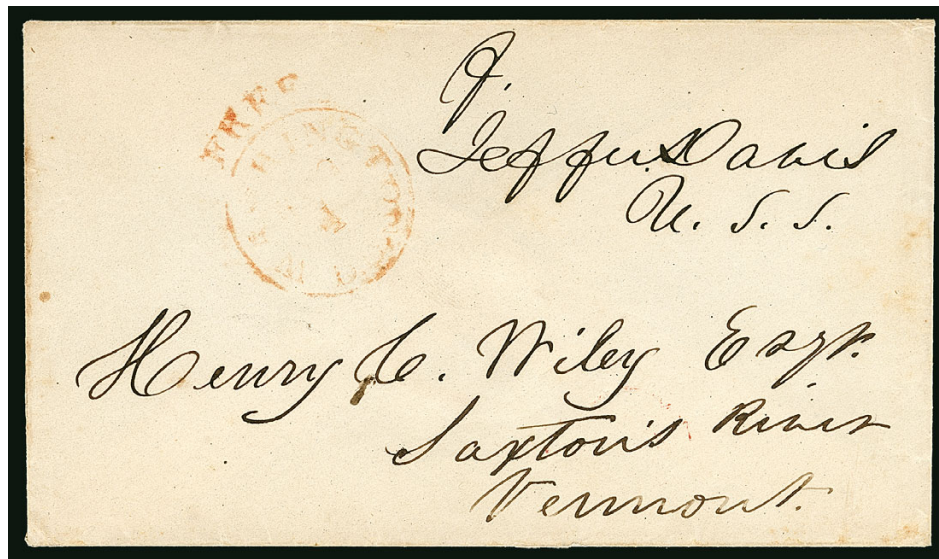 FREE
WASHINGTON
J.
Jeffn. Davis
U. S. S.
Henry C. Wiley Esqr.
Saxton's River
Vermont.